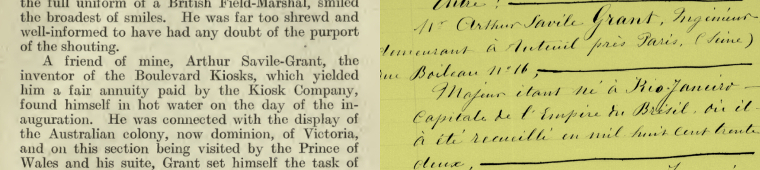 the full uniform of a British Field-Marshal, smiled
the broadest of smiles. He was far too shrewd and
well-informed to have had any doubt of the purport
of the shouting.
A friend of mine, Arthur Savile-Grant, the
inventor of the Boulevard Kiosks, which yielded
him a fair annuity paid by the Kiosk Company,
found himself in hot water on the day of the in-
auguration. He was connected with the display of
the Australian colony, now dominion, of Victoria,
and on this section being visited by the Prince of
Wales and his suite, Grant set himself the task of
Entre :
Mr Arthur Savile Grant, Ingénieur
demeurant à Auteuil près Paris, (Seine)
rue Boileau No 16,
Majeur étant né à Rio-Janeiro
Capitale de l'Empire du Brésil où il
a été recueilli en mil huit cent trente
deux,